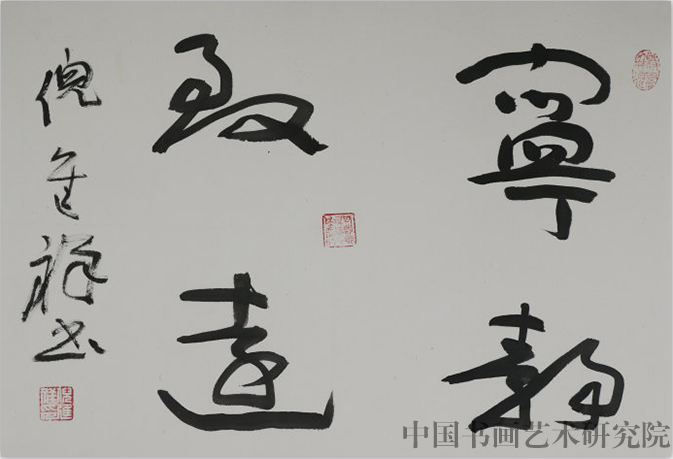 寧靜
致遠
倪祥书
中国书画艺术研究院